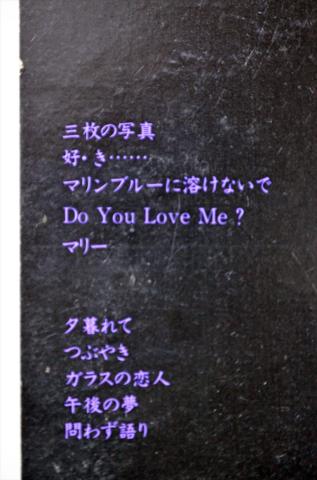 三枚の写真
好・き……
マリンブルーに溶けないで
Do You Love Me ?
マリー
夕暮れて
つぶやき
ガラスの恋人
午後の夢
問わず語り